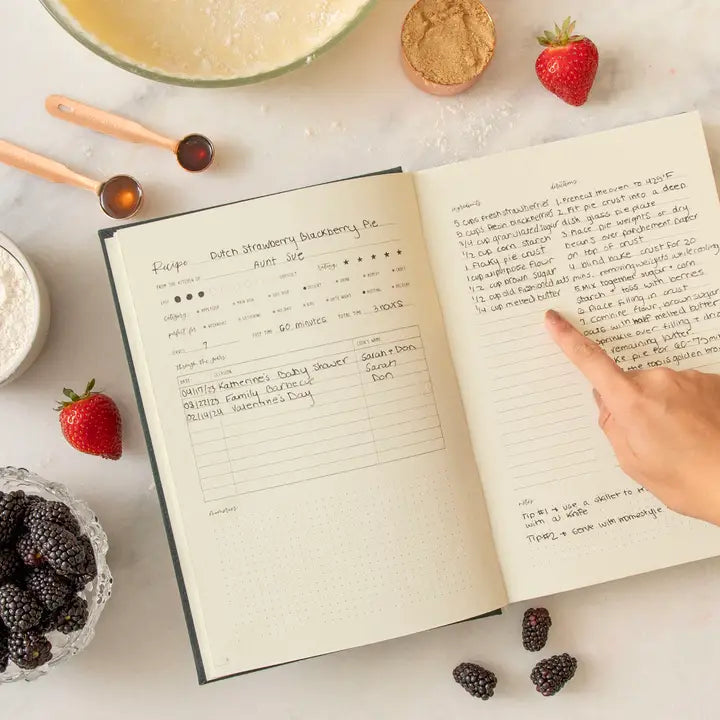 Recipe Dutch Strawberry Blackberry Pie
FROM THE KITCHEN OF Aunt Sue
Rating: ★ ★ ★ ★ ★
EASY
DIFFICULT
Category:
perfect for:
SERVES 7
PREP TIME 60 minutes TOTAL TIME 3 hours
through the years:
DATE OCCASION COOK'S NAME
04/17/23 Katherine's Baby Shower Sarah + Don
Family Barbecue Sarah
02/14/24 Valentine's Day Don
memories
ingredients
5 cups fresh strawberries
5 cups fresh blackberries
3/4 cup granulated sugar
1/2 cup corn starch
1 flaky pie crust
1 cup all purpose flour
1/2 cup brown sugar
1/2 cup old fashioned oats
1/4 cup melted butter
directions
1. Preheat the oven to 425°F
2. Fit pie crust into a deep
disk glass pie plate
3. Place pie weights or dry
beans over parchment paper
on top of crust
4. blind bake crust for 20
mins, removing weights while cooling
5. Mix together sugar + corn
starch + toss with berries
6. Place filling in crust
7. Combine flour, brown sugar
oats with half melted butter
sprinkle over filling + drizzle
remaining butter
pie for 60-75 min
the top is golden brown
notes
Tip #1 → use a skillet to
with a knife
Tip #2 → serve with homestyle